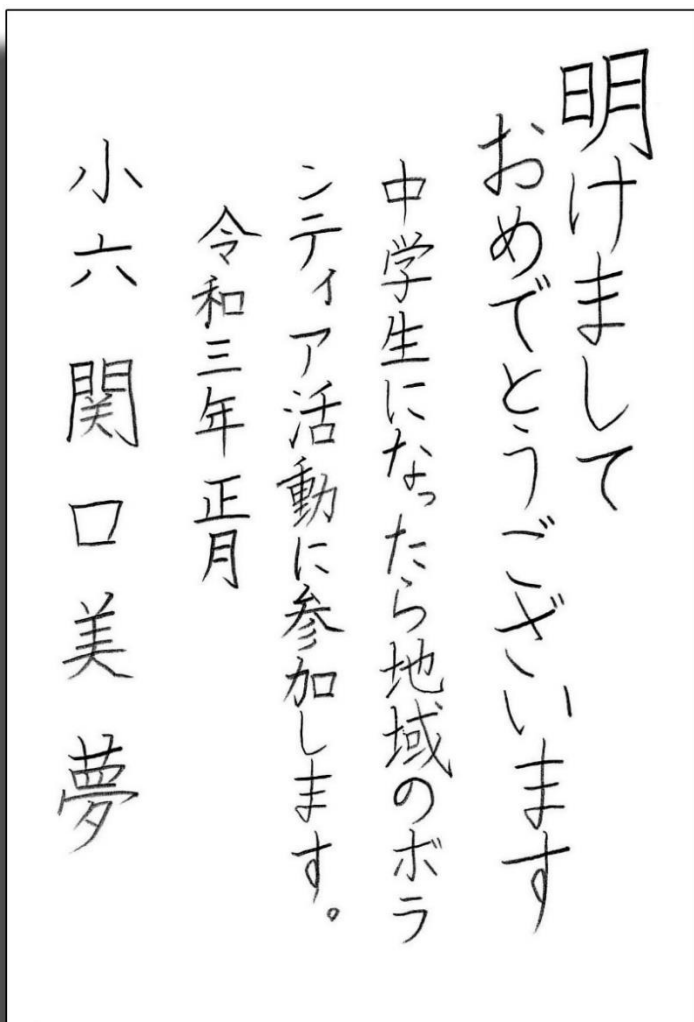 明けまして
おめでとうございます
中学生になったら地域のボラ
ンティア活動に参加します。
令和三年正月
小六 関口美夢